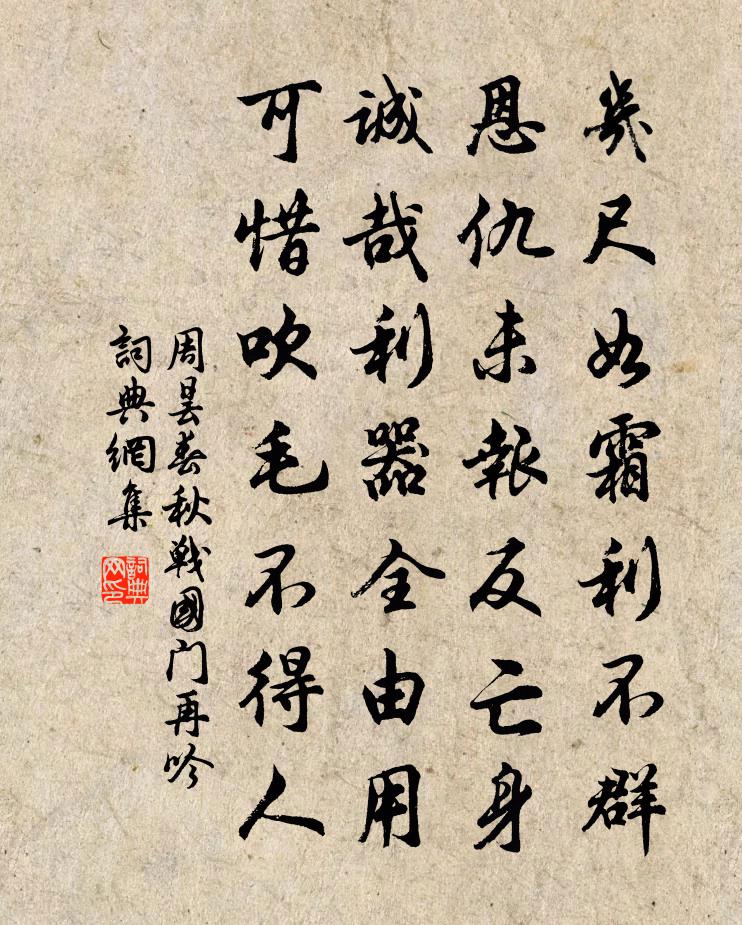 幾尺如霜利不群
恩仇未報反亡身
誠哉利器全由用
可惜吹毛不得人
周昙春秋戰國门再吟
詞典網集
詞典網印